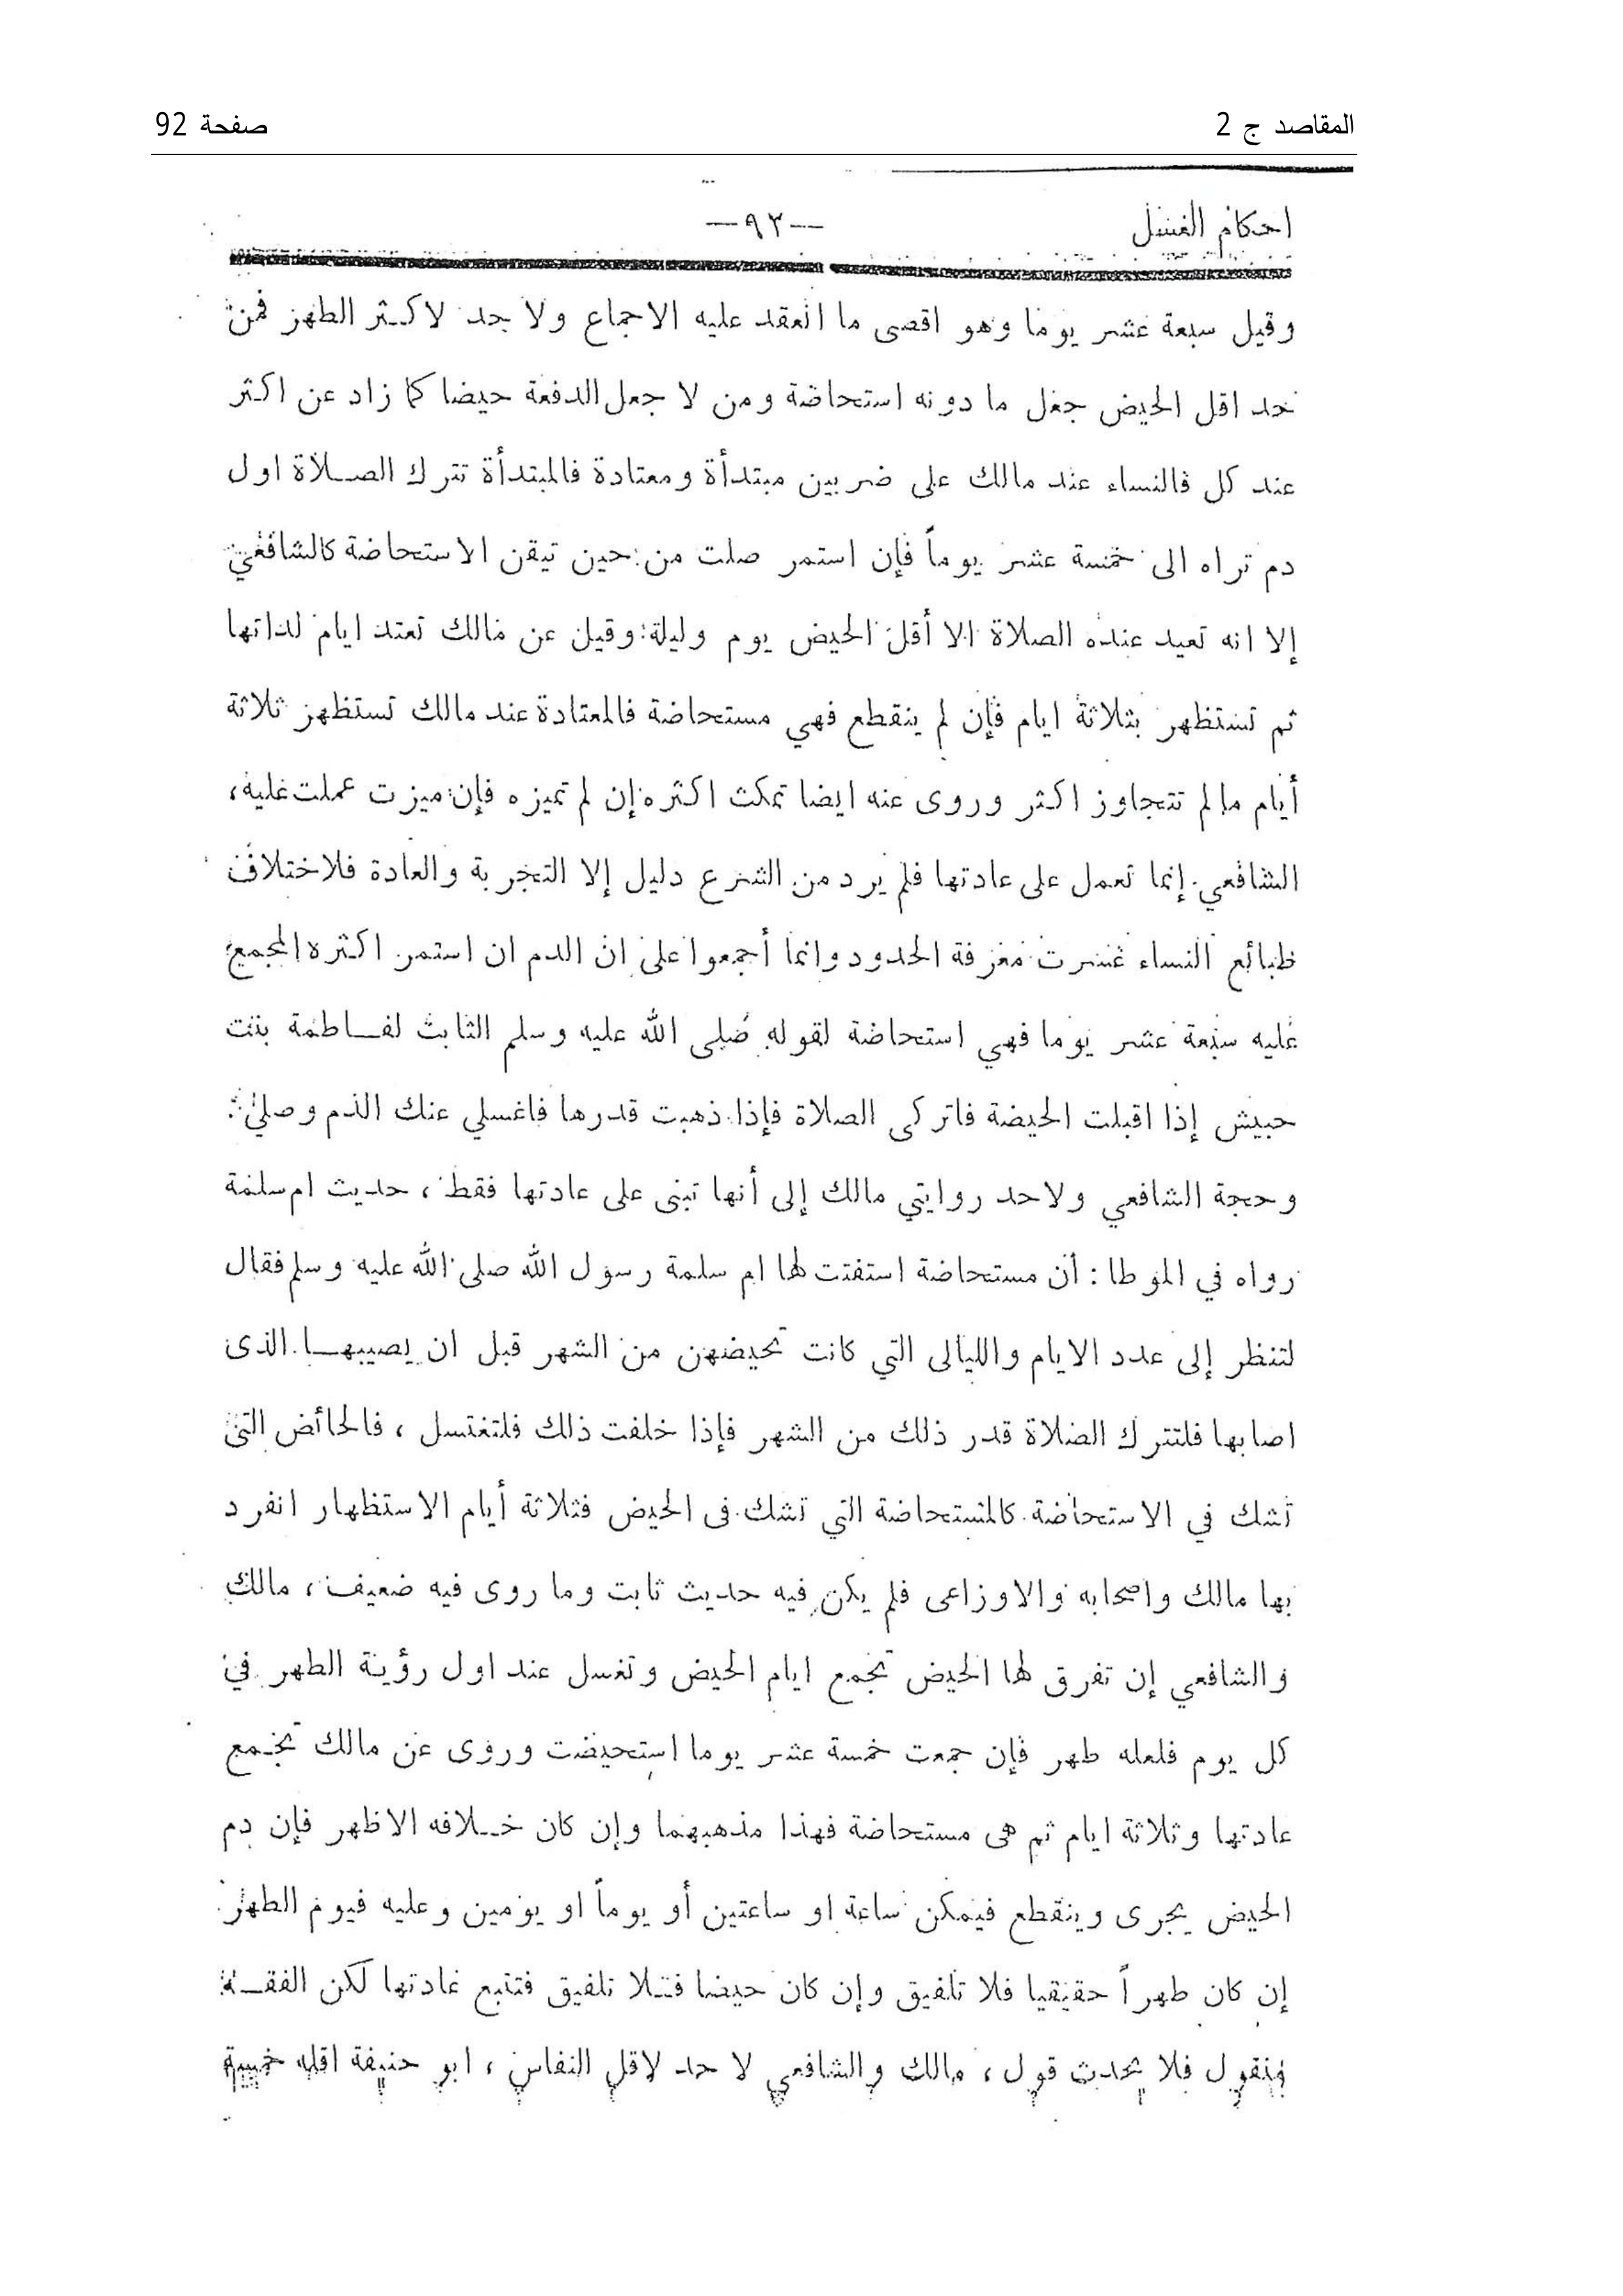 المقاصد ج 2
صفحة 92
احكام الغسل
—٩٣—
وقيل سبعة عشر يوما وهو اقصى ما انعقد عليه الاجماع ولا حد لاكثر الطهر فمن
حد اقل الحيض جعل ما دونه استحاضة ومن لا جعل الدفعة حيضا كما زاد عن اكثر
عند كل فالنساء عند مالك على ضربين مبتدأة ومعتادة فالمبتدأة تترك الصلاة اول
دم تراه الى خمسة عشر يوماً فإن استمر صلت من حين تيقن الاستحاضة كالشافعي
إلا انه تعيد عنده الصلاة الا أقل الحيض يوم وليلة وقيل عن مالك تعتد ايام لداتها
ثم تستظهر بثلاثة ايام فإن لم ينقطع فهي مستحاضة فالمعتادة عند مالك تستظهر ثلاثة
أيام مالم تتجاوز اكثر وروى عنه ايضا تمكث اكثره إن لم تميزه فإن ميزت عملت عليه،
الشافعي إنما تعمل على عادتها فلم يرد من الشرع دليل إلا التجربة والعادة فلاختلاف
طبائع النساء عسرت معرفة الحدود وانما أجمعوا على ان الدم ان استمر اكثره المجمع
عليه سبعة عشر يوما فهي استحاضة لقوله صلى الله عليه وسلم الثابث لفاطمة بنت
حبيش إذا اقبلت الحيضة فاتركى الصلاة فإذا ذهبت قدرها فاغسلي عنك الدم وصلي
وحجة الشافعي ولاحد روايتي مالك إلى أنها تبنى على عادتها فقط، حديث ام سلمة
رواه في الموطا : أن مستحاضة استفتت لها ام سلمة رسول الله صلى الله عليه وسلم فقال
لتنظر إلى عدد الايام والليالى التي كانت تحيضهن من الشهر قبل ان يصيبها الذى
اصابها فلتترك الصلاة قدر ذلك من الشهر فإذا خلفت ذلك فلتغتسل ، فالحائض التي
تشك في الاستحاضة كالمستحاضة التي تشك فى الحيض فثلاثة أيام الاستظهار انفرد
بها مالك واصحابه والاوزاعى فلم يكن فيه حديث ثابت وما روى فيه ضعيف، مالك
والشافعي إن تفرق لها الحيض تجمع ايام الحيض وتغسل عند اول رؤية الطهر في
كل يوم فلعله طهر فإن جمعت خمسة عشر يوما استحيضت وروى عن مالك تجمع
عادتها وثلاثة ايام ثم هى مستحاضة فهذا مذهبهما وإن كان خلافه الاظهر فإن دم
الحيض يجرى وينقطع فيمكن ساعة او ساعتين أو يوماً او يومين وعليه فيوم الطهر
إن كان طهراً حقيقيا فلا تلفيق وإن كان حيضا فلا تلفيق فتتبع عادتها لكن الفقه
منقول فلا يحدث قول، مالك والشافعي لا حد لاقل النفاس، ابو حنيفة اقله خمسة